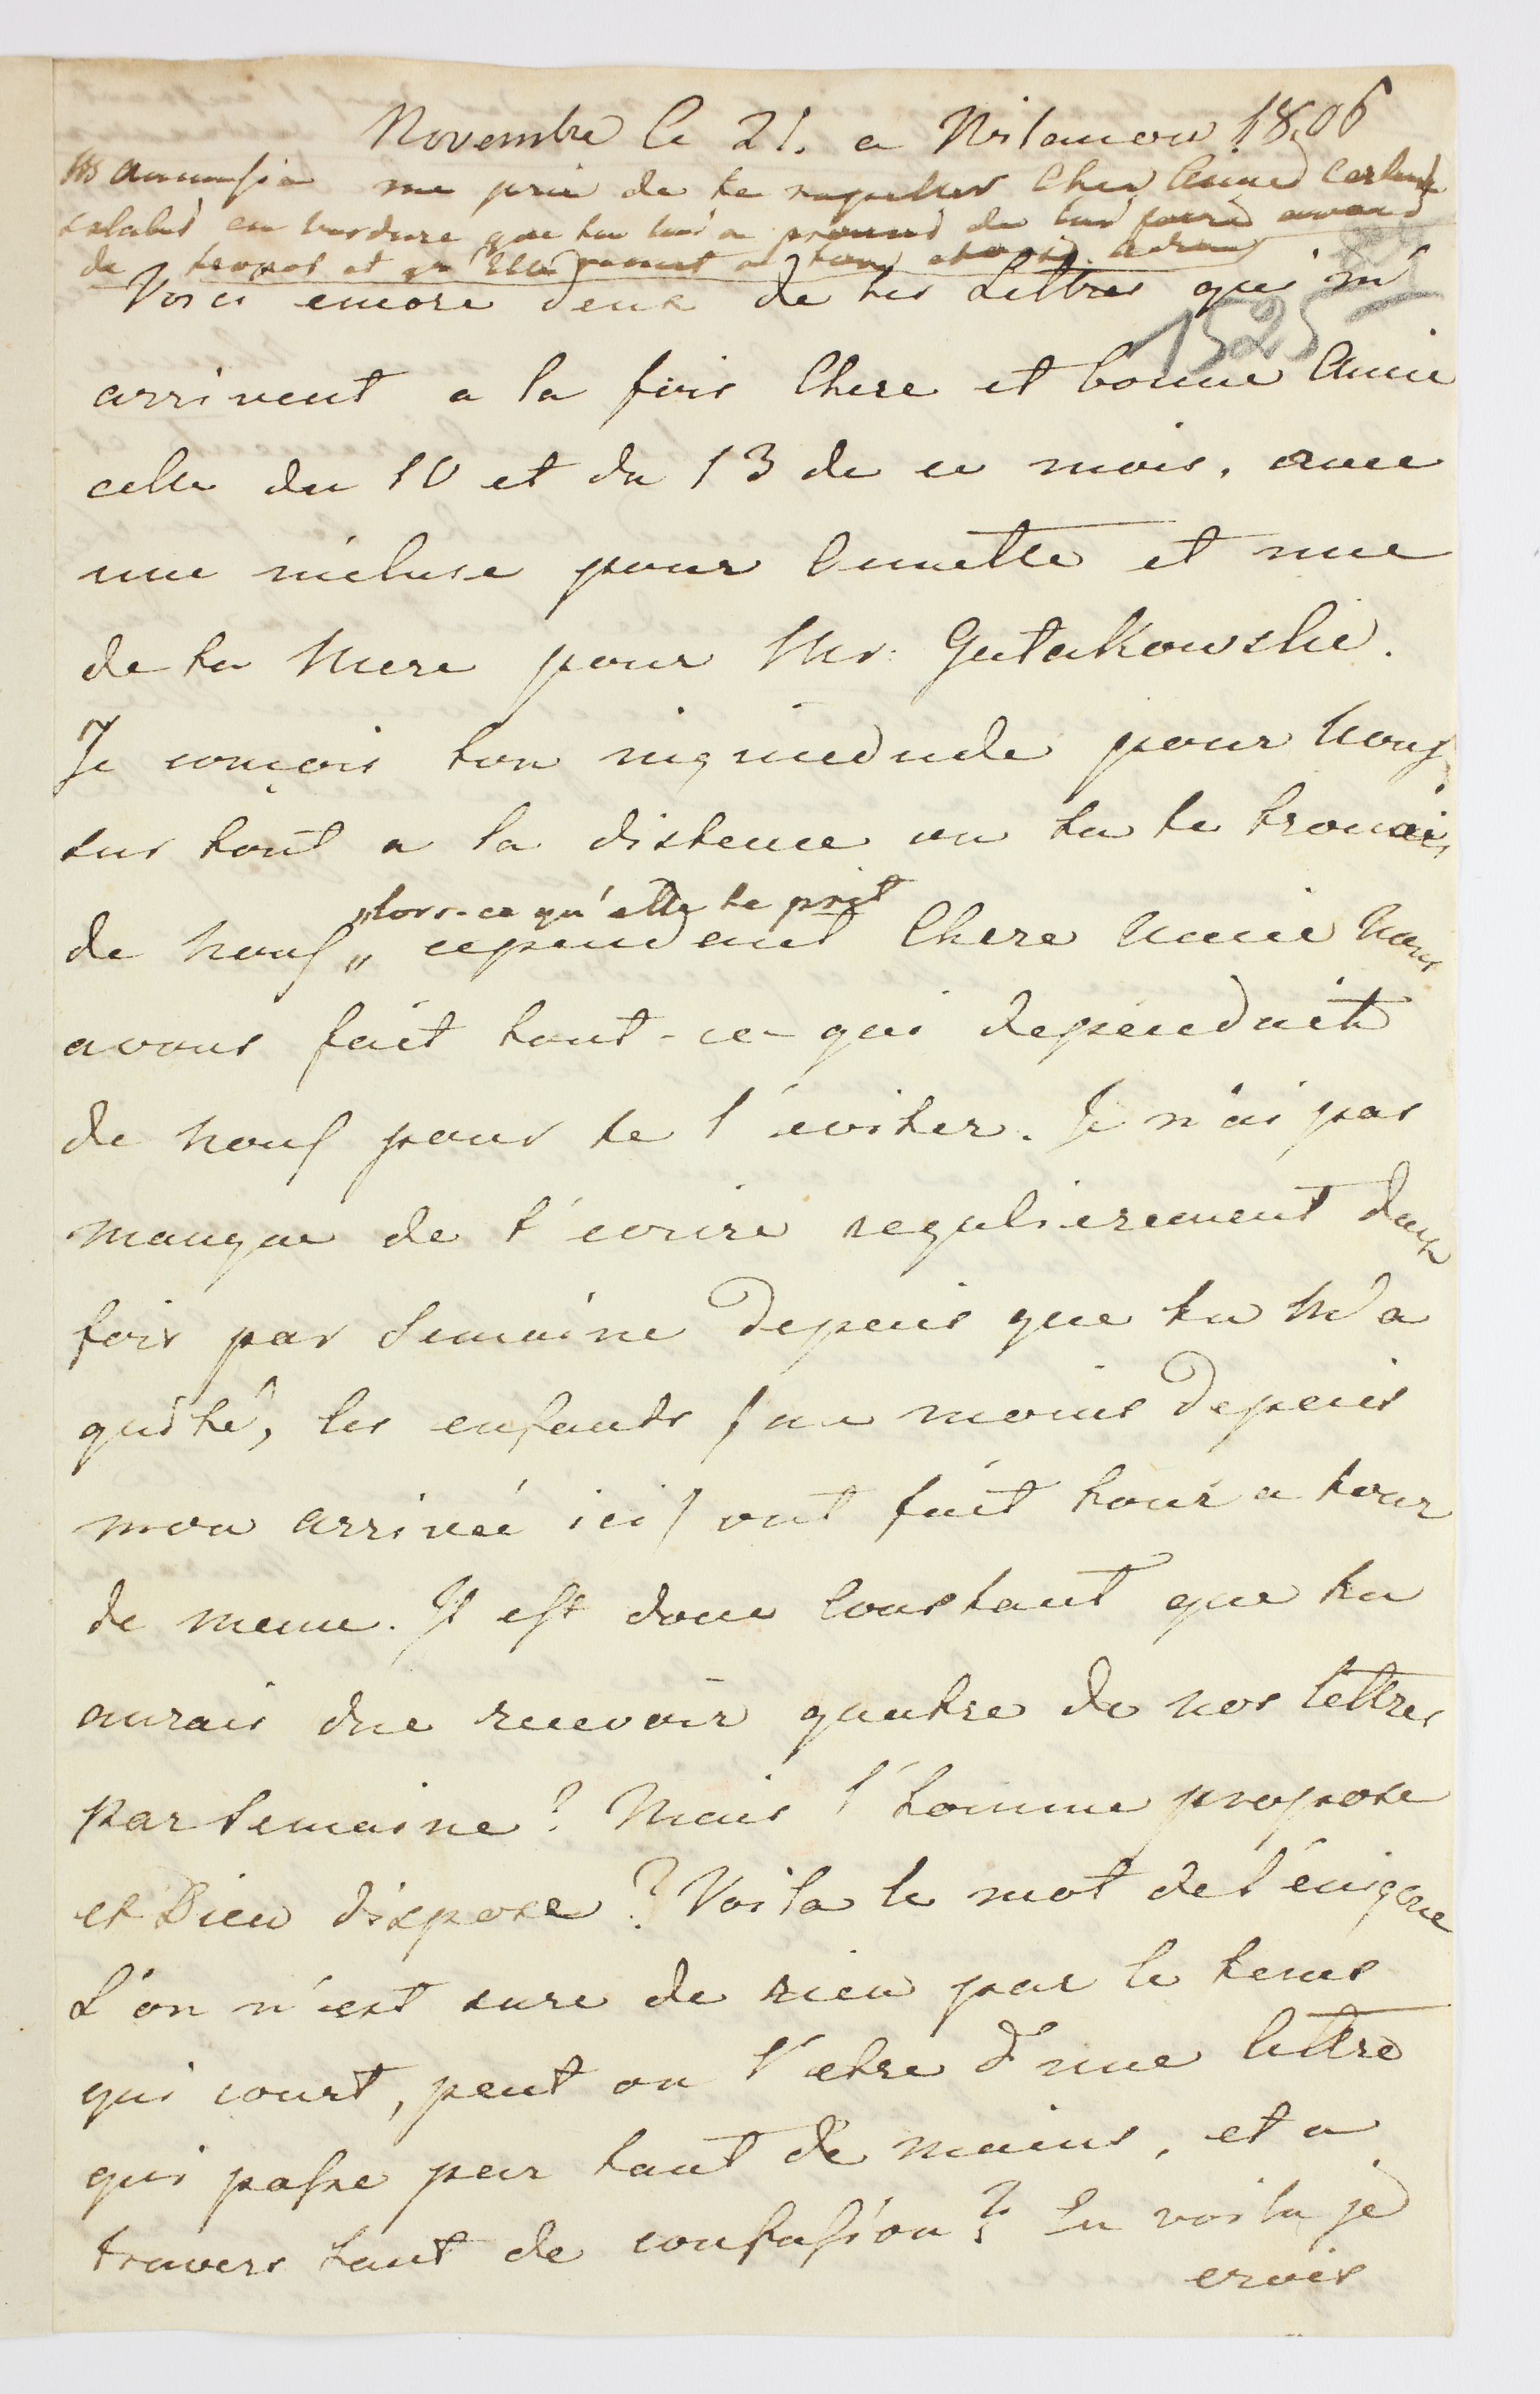 Novembre le 21. a Wilanow 1806
me prie de te rapeller Chere Amie certains
en bordure que tu lui a promis de lui faire
de et qu'Elle
Voici encore deux de tes Lettres qui m'
1525
arrivent a la fois Chere et bonne Amie
celle du 10 et du 13 de ce mois, avec
une incluse pour Annette et une
de ta Mere pour Mr: Gutakowskie.
Je conçois ton inquiedude pour Nous,
sur tout a la distence ou tu te trouvais
de nous „ cependent Chere Amie Nous
„lors-ce qu'elle te prit
avons fait tout-ce-qui dependait
de nous pour te l'eviter. Je n'ai pas
manque de t'ecrire regulierement deux
fois par Semaine depuis que tu M'a
quité, les enfants / au moins depuis
mon arriveé ici / ont fait tour a tour
de meme. Il est donc Constant que tu
aurais due recevoir quatre de nos lettres
par Semaine? Mais l'homme propose
et Dieu dispose? Voila le mot de l'énigme
L'on n'est sure de rien par le tems
qui court, peut on l'etre d'une lettre
qui passe par tant de mains, et a
travers tant de confusion? En voila je
crois